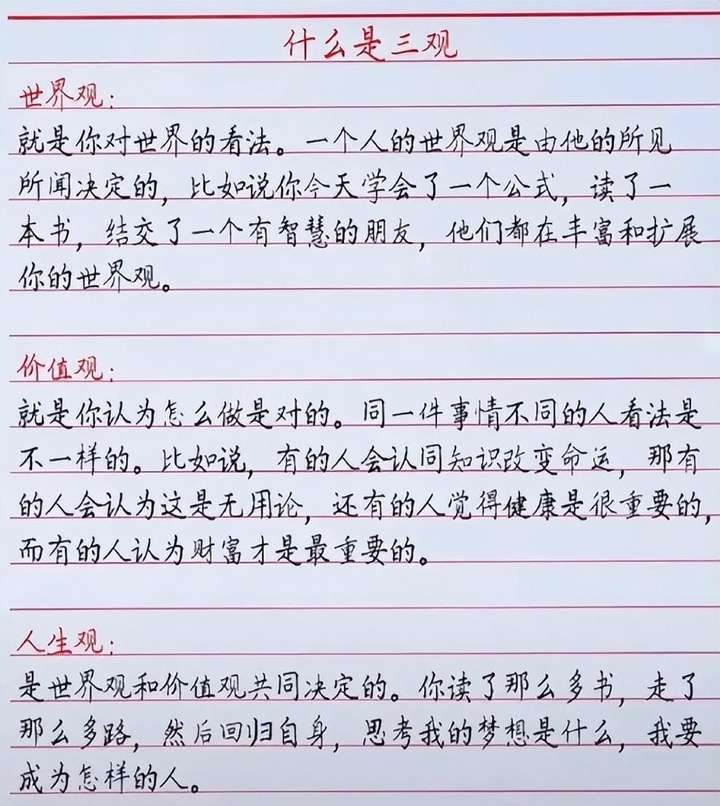 什么是三观
世界观：
就是你对世界的看法。一个人的世界观是由他的所见
所闻决定的，比如说你今天学会了一个公式，读了一
本书，结交了一个有智慧的朋友，他们都在丰富和扩展
你的世界观。
价值观：
就是你认为怎么做是对的。同一件事情不同的人看法是
不一样的。比如说，有的人会认同知识改变命运，那有
的人会认为这是无用论，还有的人觉得健康是很重要的，
而有的人认为财富才是最重要的。
人生观：
是世界观和价值观共同决定的。你读了那么多书，走了
那么多路，然后回归自身，思考我的梦想是什么，我要
成为怎样的人。